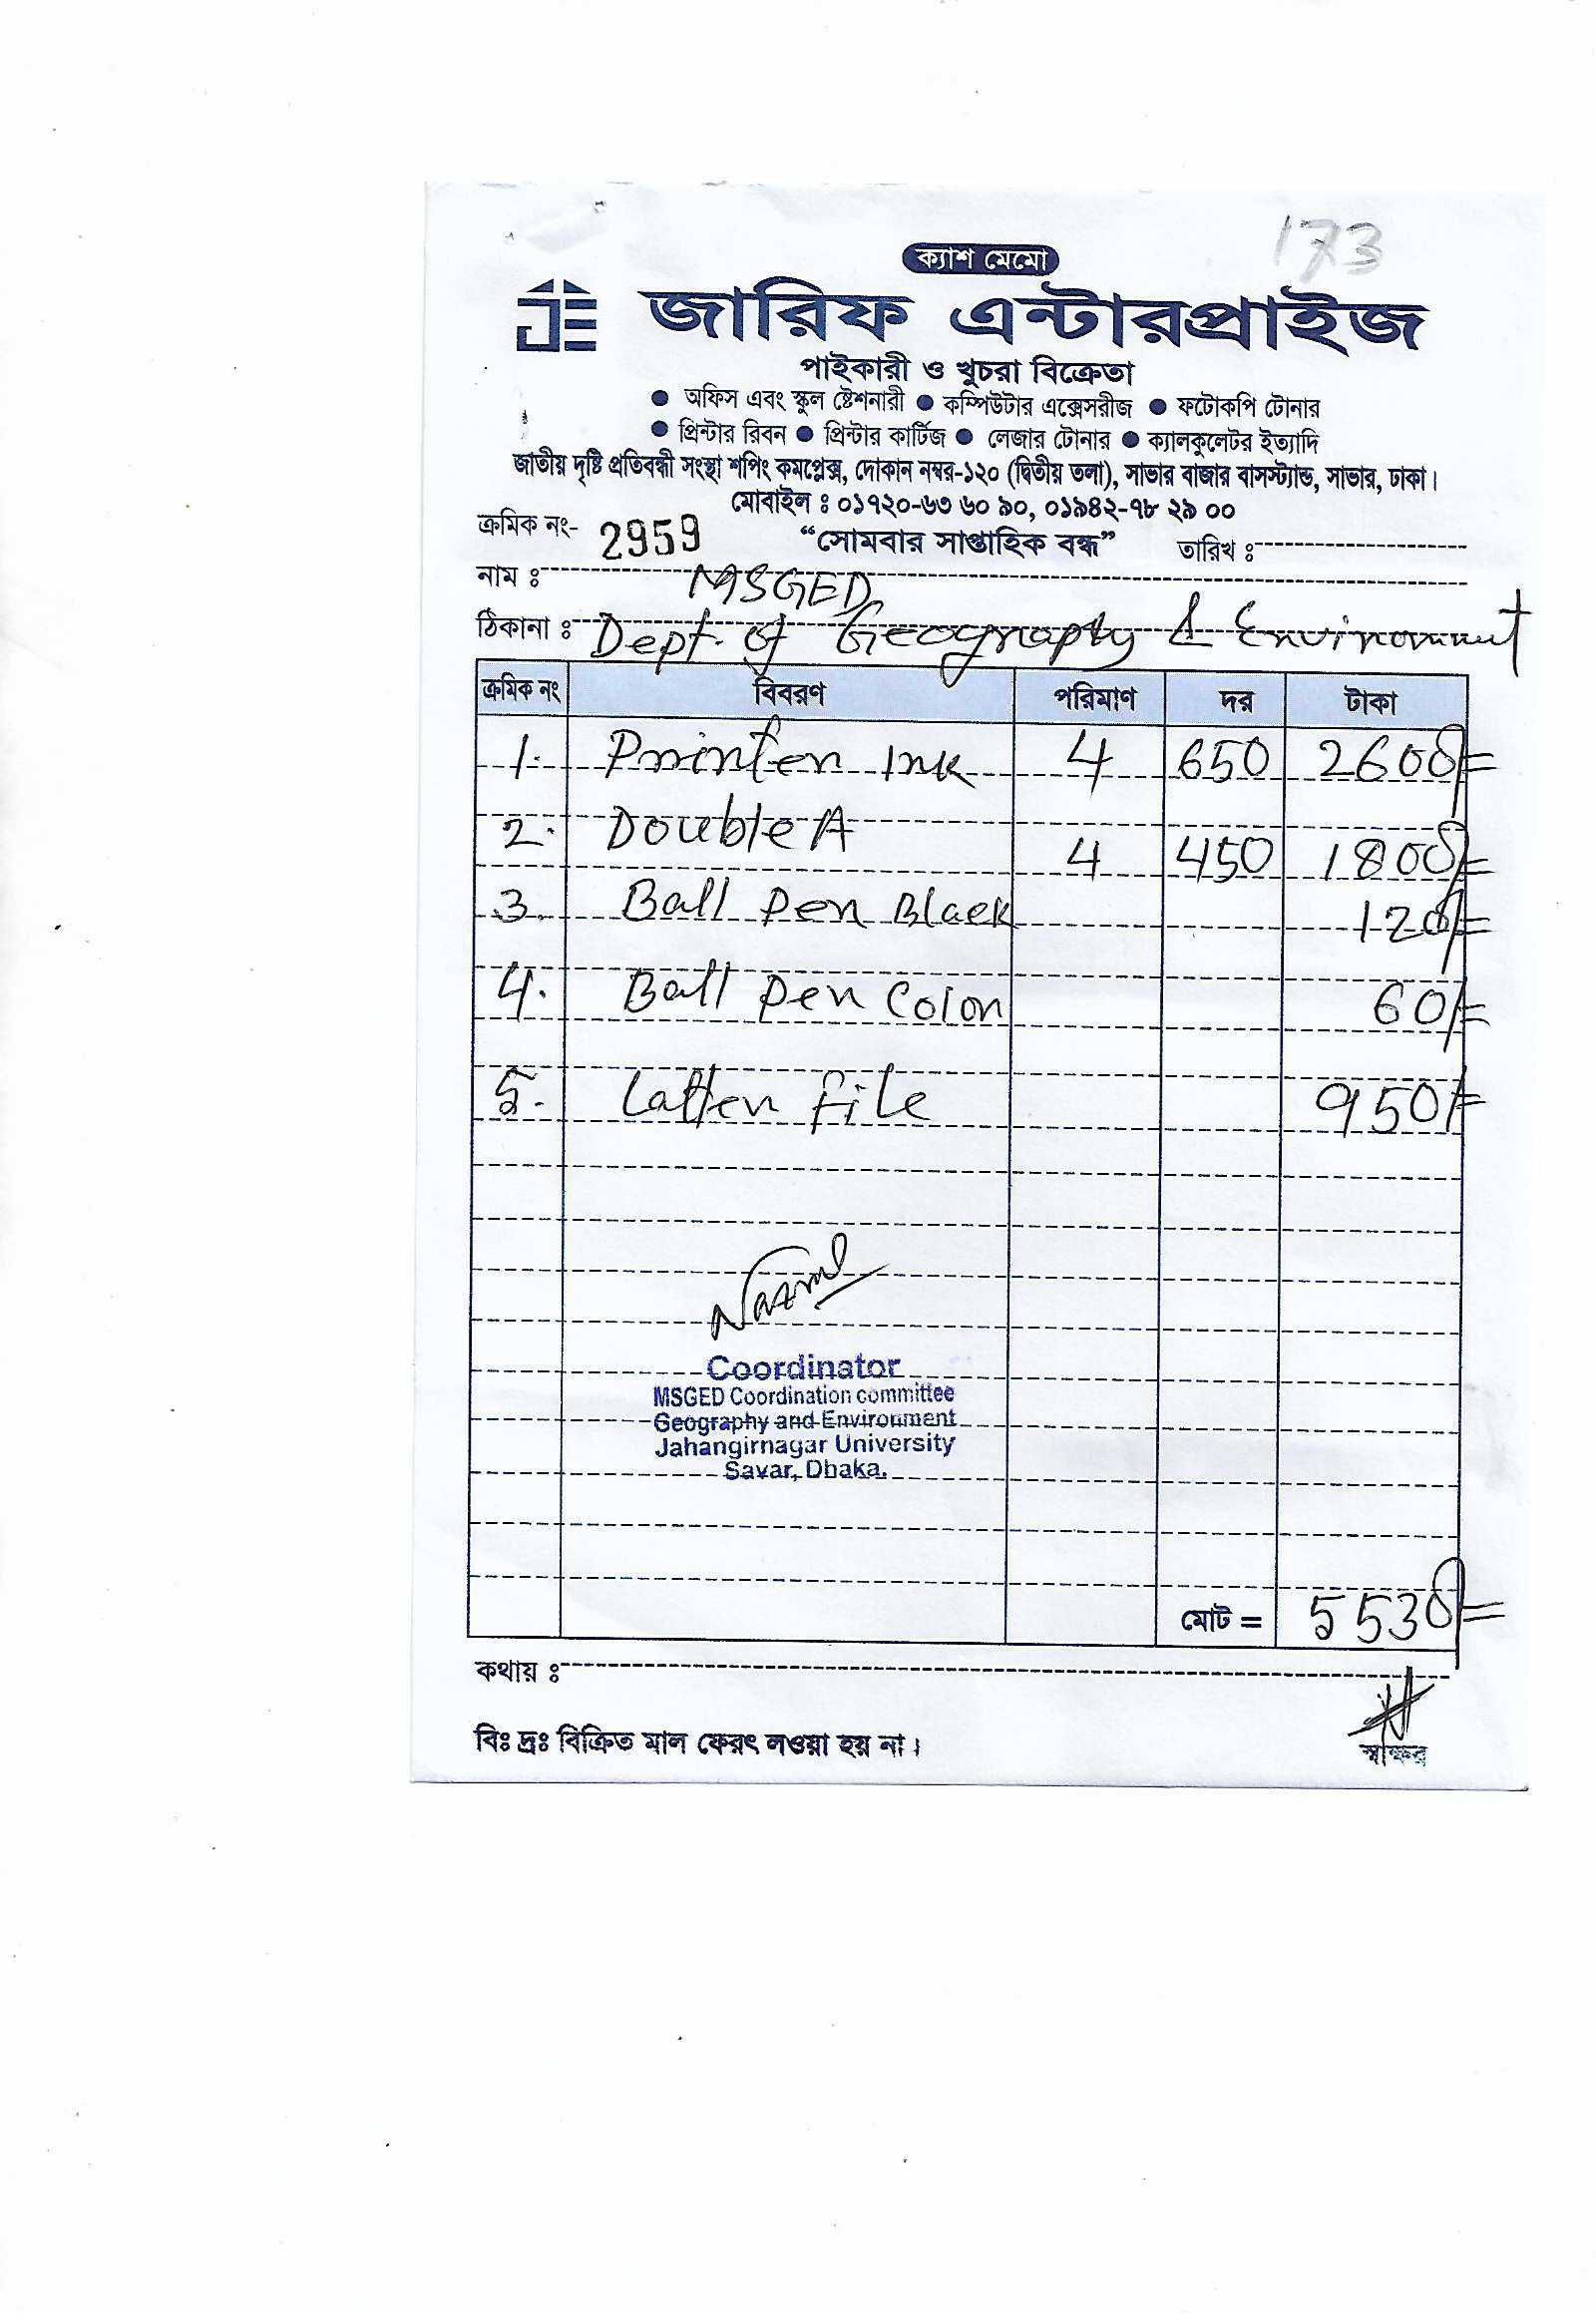 173
ক্যাশ মেমো
JE জারিফ এন্টারপ্রাইজ
পাইকারী ও খুচরা বিক্রেতা
● অফিস এবং স্কুল ষ্টেশনারী ● কম্পিউটার এক্সেসরীজ ● ফটোকপি টোনার
● প্রিন্টার রিবন ● প্রিন্টার কার্টিজ ● লেজার টোনার ● ক্যালকুলেটর ইত্যাদি
জাতীয় দৃষ্টি প্রতিবন্ধী সংস্থা শপিং কমপ্লেক্স, দোকান নম্বর-১২০ (দ্বিতীয় তলা), সাভার বাজার বাসস্ট্যান্ড, সাভার, ঢাকা।
মোবাইল ঃ ০১৭২০-৬৩ ৬০ ৯০, ০১৯৪২-৭৮ ২৯ ০০
ক্রমিক নং- 2959 “সোমবার সাপ্তাহিক বন্ধ” তারিখ ঃ
নাম ঃ MSGED
ঠিকানা ঃ Dept. of Geography & Environment
ক্রমিক নং বিবরণ পরিমাণ দর টাকা
1. Printer Ink 4 650 2600/=
2. Double A 4 450 1800/=
3. Ball Pen Black 120/=
4. Ball Pen Color 60/=
5. Latter File 950/=
Coordinator
MSGED Coordination committee
Geography and Environment
Jahangirnagar University
Savar, Dhaka.
মোট = 5530/=
কথায় ঃ
বিঃ দ্রঃ বিক্রিত মাল ফেরৎ লওয়া হয় না।
স্বাক্ষর